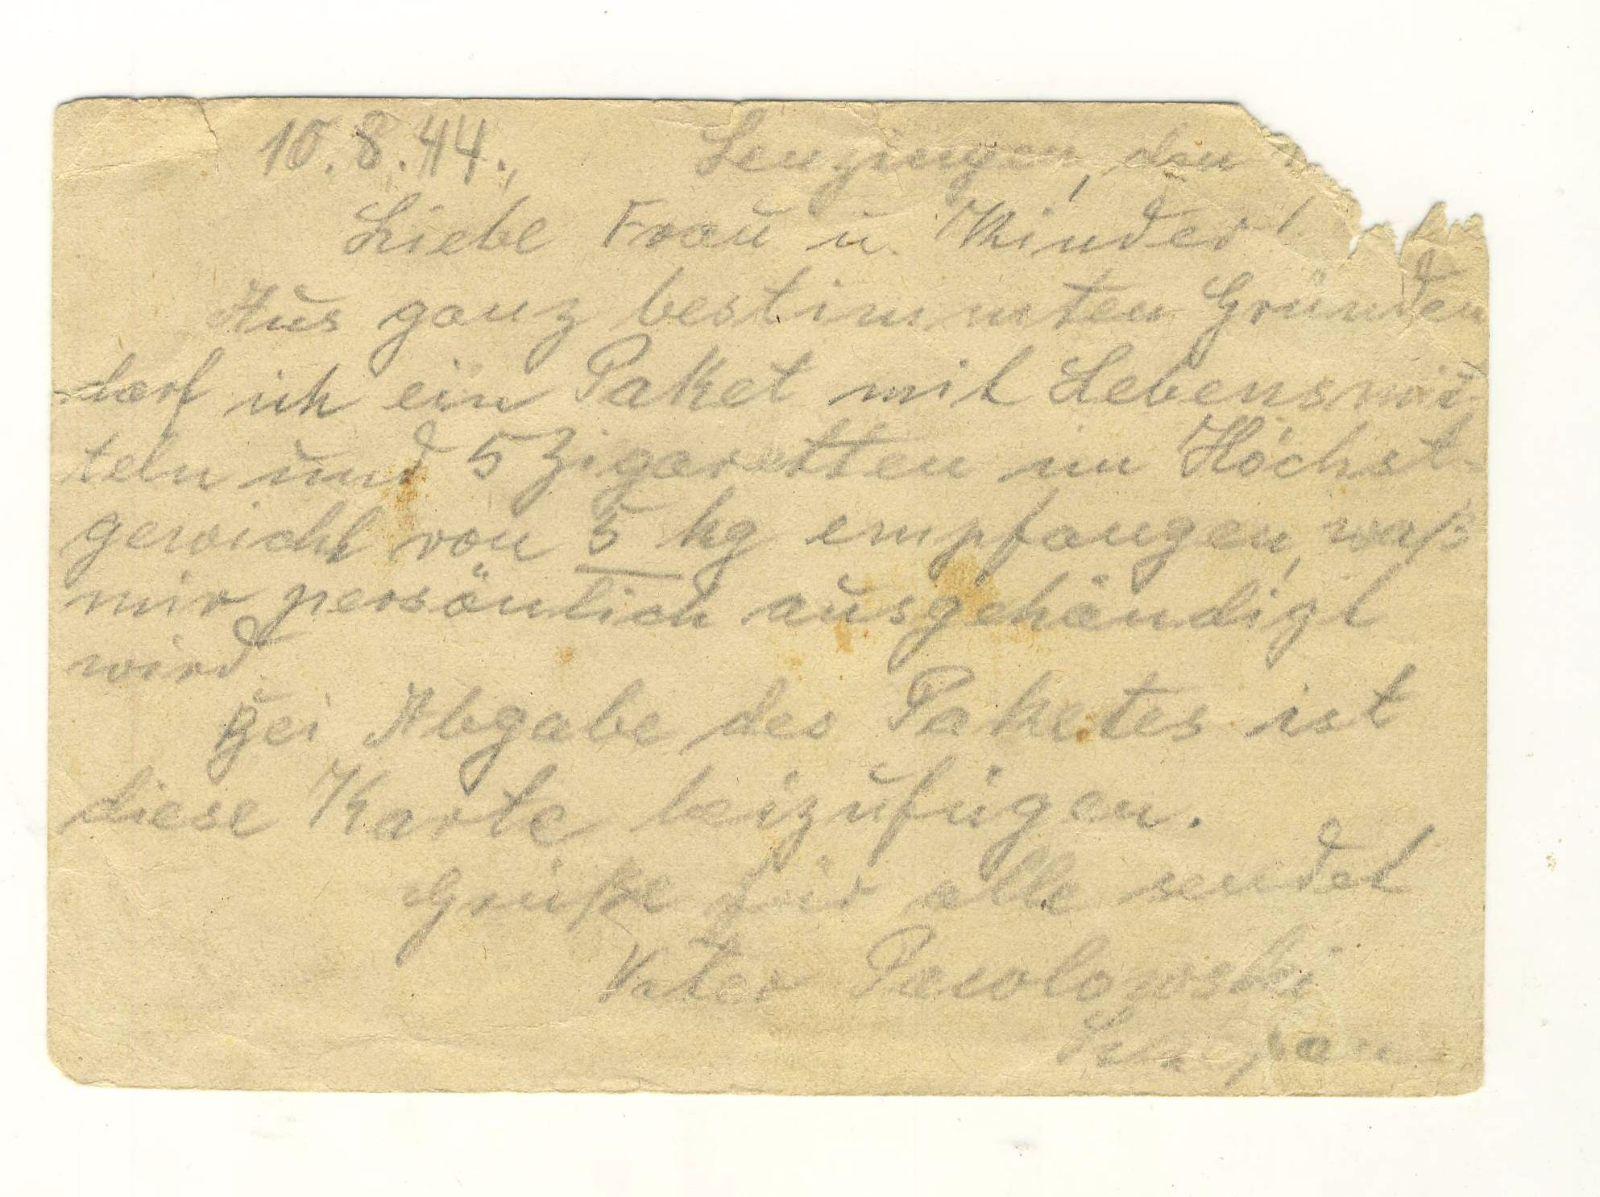 10.8.44., Lenzingen, den
Liebe Frau u. Kinder!
Aus ganz bestimmten Gründen
darf ich ein Paket mit Lebensmit-
teln und 5 Zigaretten im Höchst-
gewicht von 5 kg empfangen, waß
mir persönlich ausgehändigt
wird.
Bei Abgabe des Paketes ist
diese Karte beizufügen.
Grüße für alle sendet
Vater Pawlowski